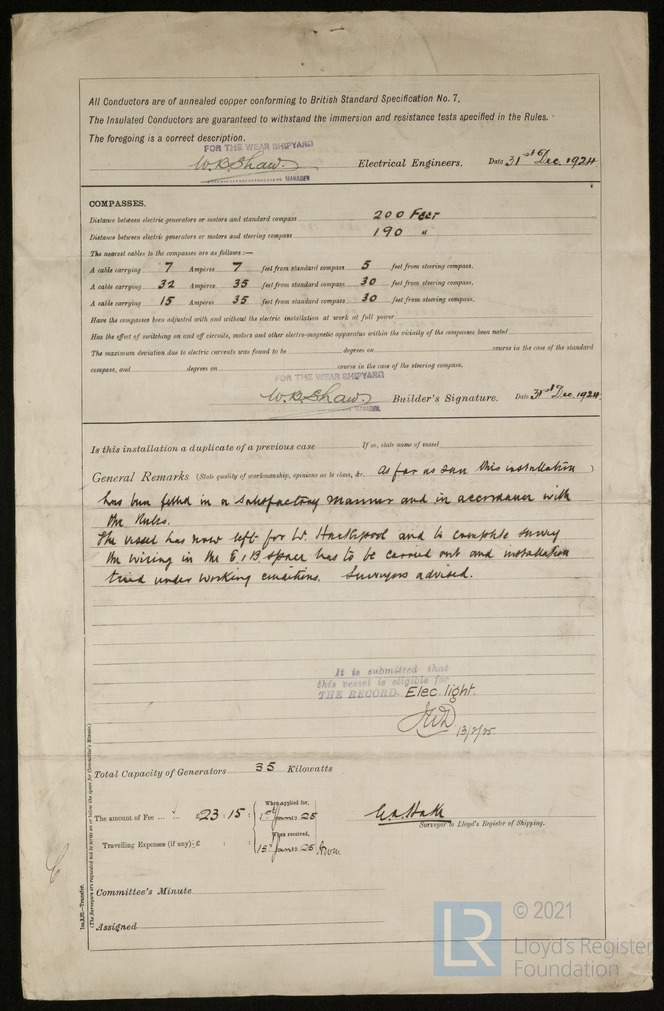 All Conductors are of annealed copper conforming to British Standard Specification No. 7.
The Insulated Conductors are guaranteed to withstand the immersion and resistance tests specified in the Rules.
The foregoing is a correct description.
FOR THE WEAR SHIPYARD
W.B. Shaw. Electrical Engineers. Date 31st Dec. 1924
MANAGER
COMPASSES.
Distance between electric generators or motors and standard compass 200 Feet
Distance between electric generators or motors and steering compass 190 "
The nearest cables to the compasses are as follows:—
A cable carrying 7 Ampères 7 feet from standard compass 5 feet from steering compass.
A cable carrying 32 Ampères 35 feet from standard compass 30 feet from steering compass.
A cable carrying 15 Ampères 35 feet from standard compass 30 feet from steering compass.
Have the compasses been adjusted with and without the electric installation at work at full power
Has the effect of switching on and off circuits, motors and other electro-magnetic apparatus within the vicinity of the compasses been noted
The maximum deviation due to electric currents was found to be degrees on course in the case of the standard
compass, and degrees on course in the case of the steering compass.
FOR THE WEAR SHIPYARD
W.B. Shaw Builder's Signature. Date 31st Dec. 1924
MANAGER.
Is this installation a duplicate of a previous case If so, state name of vessel
General Remarks (State quality of workmanship, opinions as to class, &c. As far as seen this installation )
has been fitted in a satisfactory manner and in accordance with
the Rules.
The vessel has now left for W. Hartlepool and to complete survey
the wiring in the E & B space has to be carried out and installation
tried under working conditions. Surveyors advised.
It is submitted that
this vessel is eligible for
THE RECORD. Elec. light.
13/2/25.
Total Capacity of Generators 35 Kilowatts
The amount of Fee ... £23 : 15 : When applied for, 1st Jan 25
Surveyor to Lloyd's Register of Shipping.
Travelling Expenses (if any) £ : : When received, 15th Jan 25
Committee's Minute
Assigned
Im.3.21.—Transfer.
(The Surveyors are requested not to write on or below the space for Committee's Minute.)
LR
© 2021
Lloyd's Register
Foundation